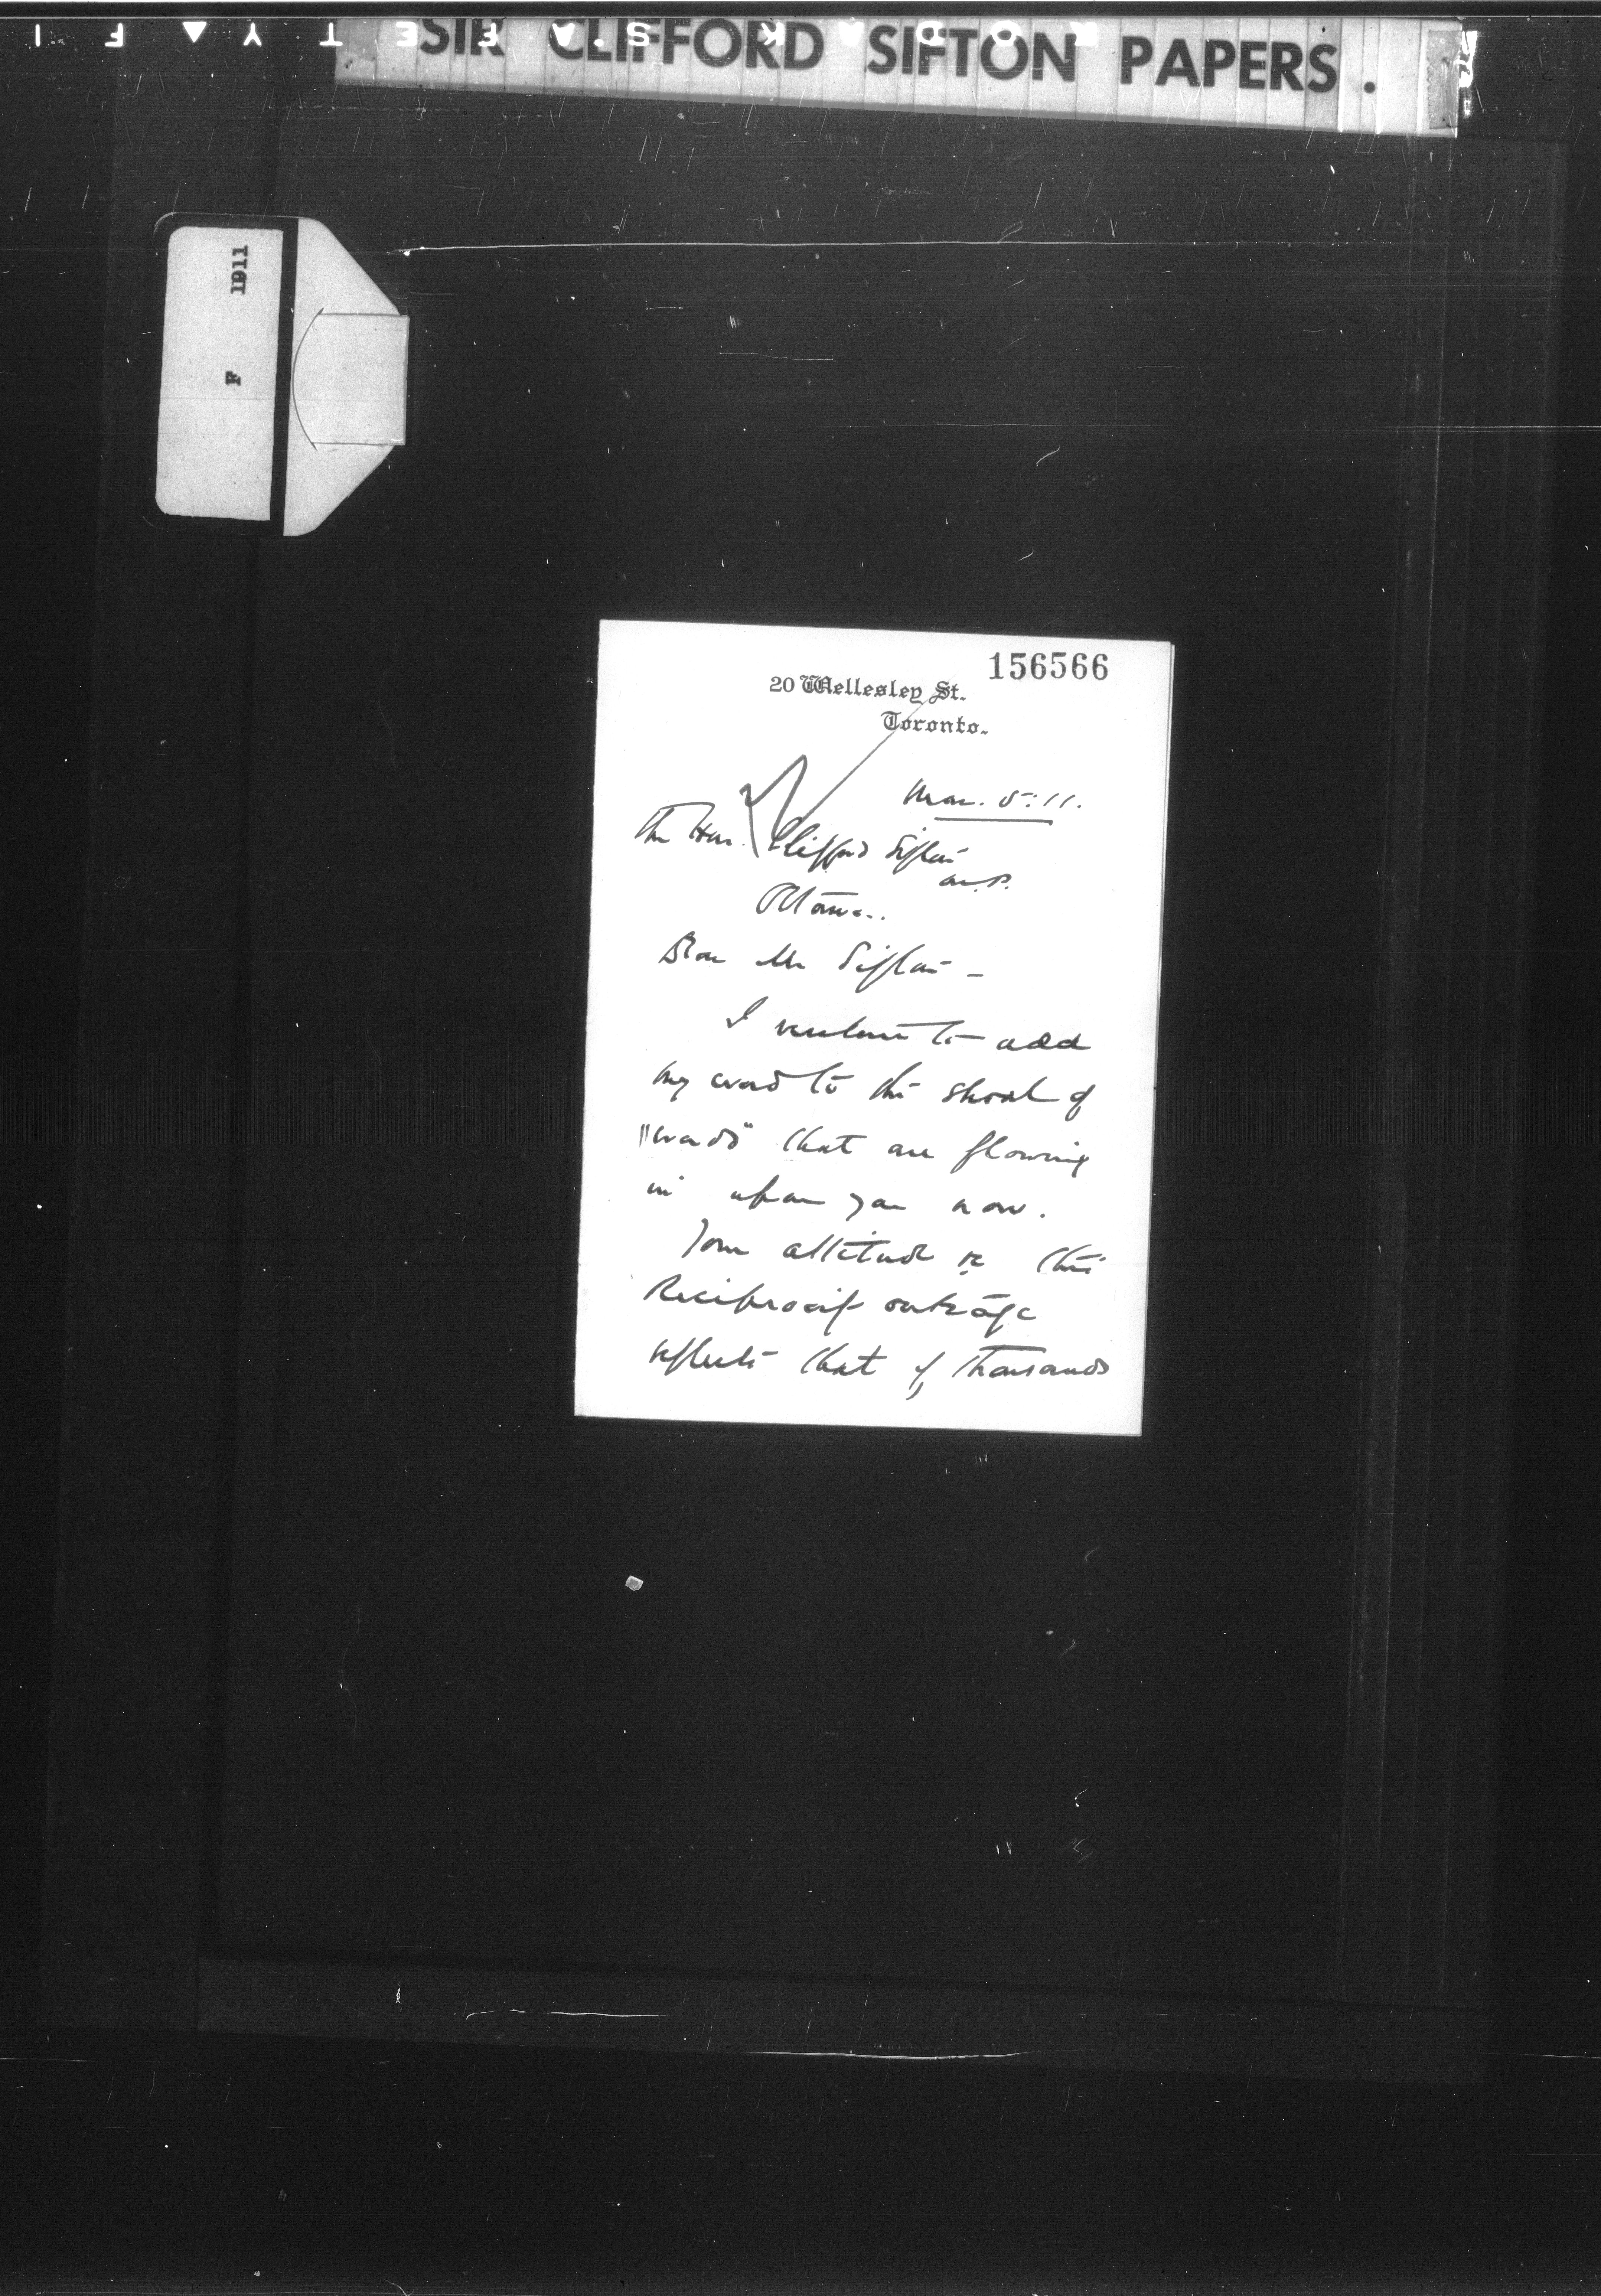 SIR CLIFFORD SIFTON PAPERS.
1911
F
156566
20 Wellesley St.
Toronto.
Mar. 5: 11.
The Hon. Clifford Sifton
M.P.
Ottawa..
Dear Mr Sifton -
I venture to add
my word to the shoal of
"words" that are flowing
in upon you now.
Your attitude re this
Reciprocity outrage
reflects that of thousands